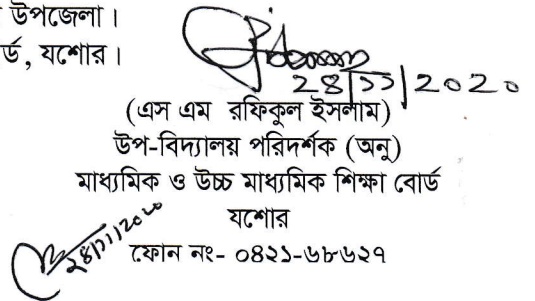 উপজেলা।
র্ড, যশোর।
২৪/১১/২০২০
(এস এম রফিকুল ইসলাম)
উপ-বিদ্যালয় পরিদর্শক (অনু)
মাধ্যমিক ও উচ্চ মাধ্যমিক শিক্ষা বোর্ড
যশোর
ফোন নং- ০৪২১-৬৮৬২৭
২৪/১১/২০২০